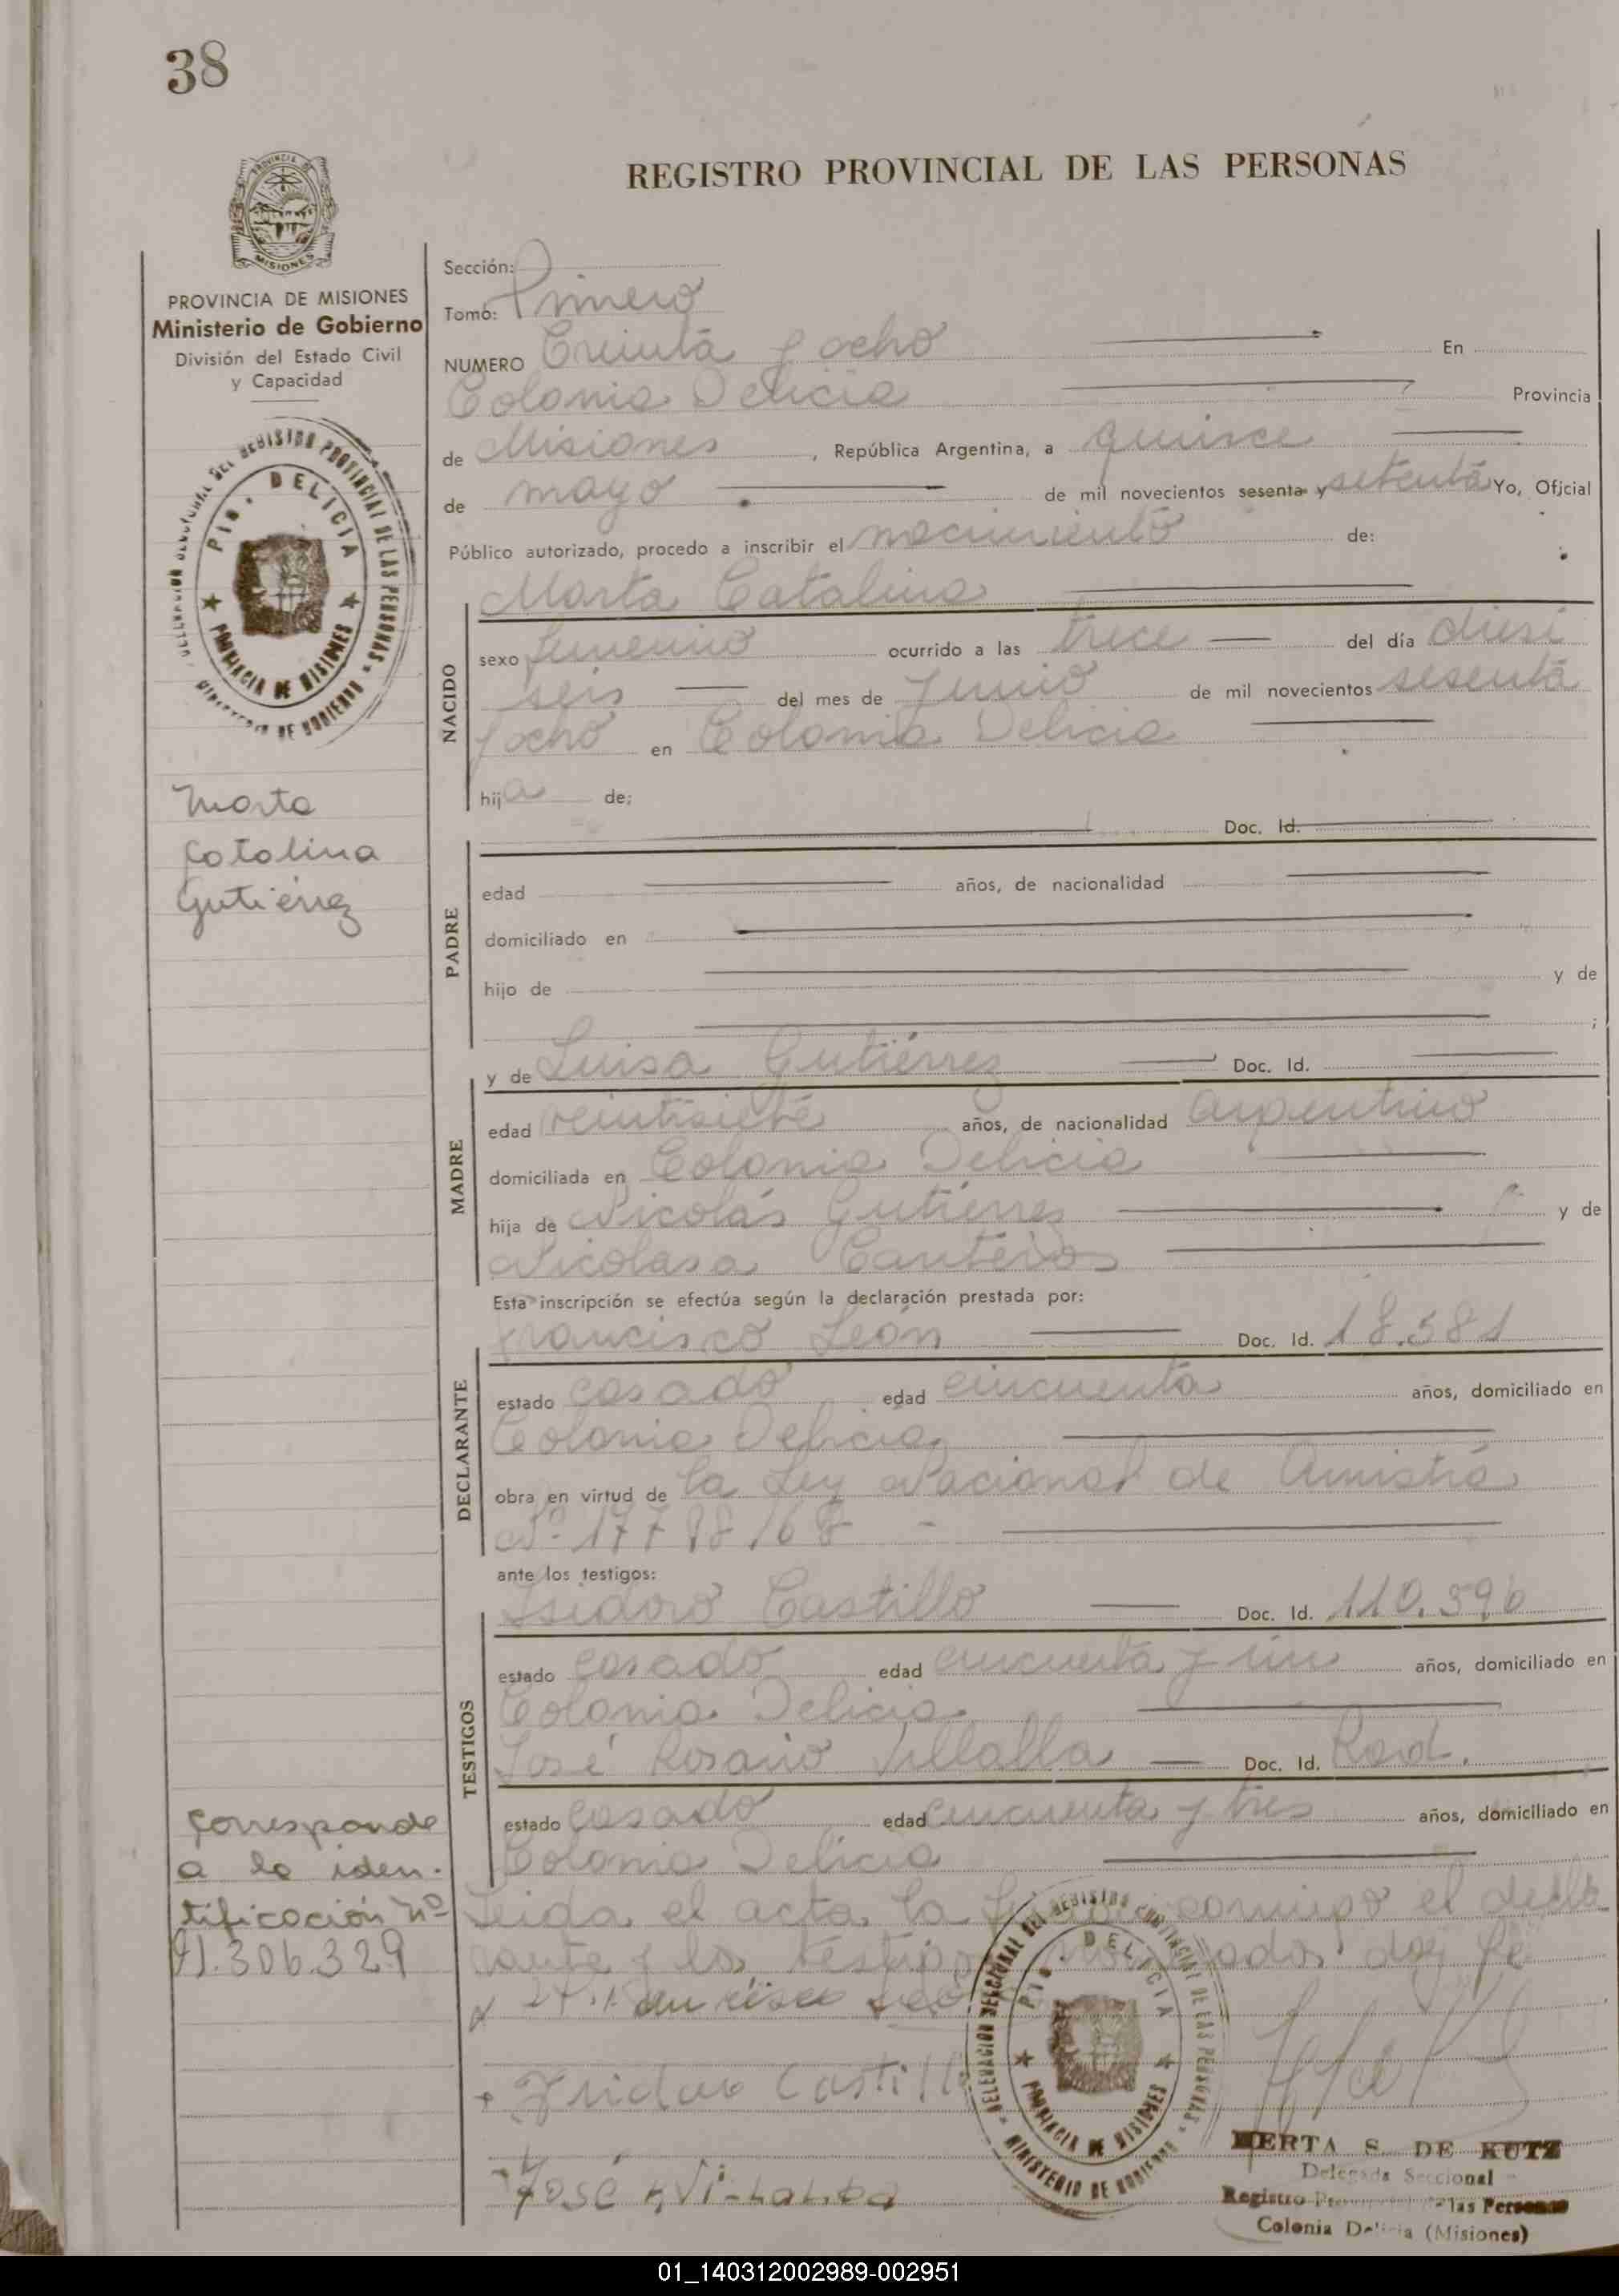 38
REGISTRO PROVINCIAL DE LAS PERSONAS
MISIONES
PROVINCIA DE MISIONES
Ministerio de Gobierno
División del Estado Civil
y Capacidad
Sección:
Tomo: Primero
NUMERO Treinta y ocho En
Colonia Delicia Provincia
de Misiones, República Argentina, a quince
de mayo de mil novecientos sesenta y setenta Yo, Oficial
Público autorizado, procedo a inscribir el nacimiento de:
Marta Catalina
NACIDO
sexo femenino ocurrido a las trece del día dieci
seis del mes de Junio de mil novecientos sesenta
y ocho en Colonia Delicia
hija de:
Marta
Catalina
Gutiérrez
PADRE
Doc. Id.
edad años, de nacionalidad
domiciliado en
hijo de y de
;
MADRE
y de Luisa Gutiérrez Doc. Id.
edad veintisiete años, de nacionalidad argentino
domiciliada en Colonia Delicia
hija de Nicolás Gutiérrez y de
Nicolasa Canteros
Esta inscripción se efectúa según la declaración prestada por:
DECLARANTE
Francisco León Doc. Id. 18.581
estado casado edad cincuenta años, domiciliado en
Colonia Delicia
obra en virtud de la Ley Nacional de Amistia
Nº 17798/68
ante los testigos:
TESTIGOS
Isidoro Castillo Doc. Id. 110.596
estado casado edad cincuenta y un años, domiciliado en
Colonia Delicia
José Rosario Villalba Doc. Id.
estado casado edad cincuenta y tres años, domiciliado en
Colonia Delicia
Corresponde
a la iden-
tificación nº
91.306.329
Leida el acta la conmigo el decla
rante y los testigos doy fé
Castillo
José Villalba
DELEGACION SECCIONAL DEL REGISTRO PROVINCIAL DE LAS PERSONAS
MINISTERIO DE GOBIERNO
Pto. DELICIA
PROVINCIA DE MISIONES
HERTA S. DE KUTZ
Delegada Seccional
Registro Provincial de las Personas
Colonia Delicia (Misiones)
01_140312002989-002951